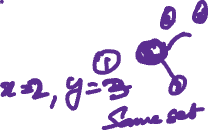 ①
x=2, y=3
Same set